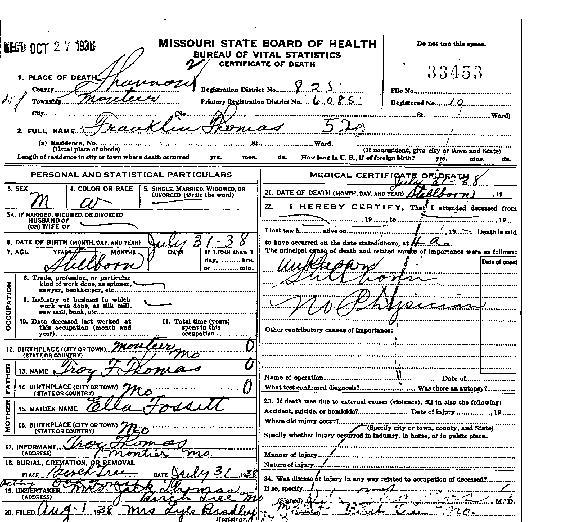 REC'D OCT 27 1938
MISSOURI STATE BOARD OF HEALTH
BUREAU OF VITAL STATISTICS
CERTIFICATE OF DEATH
Do not use this space.
33453
1. PLACE OF DEATH
County Shannon Registration District No. 825 File No.
Township Montier Primary Registration District No. 6085 Registered No. 10
City No. St. Ward)
2. FULL NAME Franklin Thomas 520
(a) Residence, No. St. Ward.
(Usual place of abode) (If nonresident, give city or town and State)
Length of residence in city or town where death occurred yrs. mos. ds. How long in U. S., if of foreign birth? yrs. mos. ds.
PERSONAL AND STATISTICAL PARTICULARS
3. SEX M
4. COLOR OR RACE W
5. SINGLE, MARRIED, WIDOWED, OR DIVORCED (write the word)
5A. IF MARRIED, WIDOWED, OR DIVORCED
HUSBAND OF
(OR) WIFE OF
6. DATE OF BIRTH (MONTH, DAY, AND YEAR) July 31-38
7. AGE YEARS MONTHS DAYS If LESS than 1 day, hrs. or min.
Stillborn
OCCUPATION
8. Trade, profession, or particular kind of work done, as spinner, sawyer, bookkeeper, etc.
9. Industry or business in which work was done, as silk mill, saw mill, bank, etc.
10. Date deceased last worked at this occupation (month and year)
11. Total time (years) spent in this occupation
12. BIRTHPLACE (CITY OR TOWN) Montier
(STATE OR COUNTRY) Mo 0
FATHER
13. NAME Troy F Thomas 0
14. BIRTHPLACE (CITY OR TOWN) Mo
(STATE OR COUNTRY)
MOTHER
15. MAIDEN NAME Ella
16. BIRTHPLACE (CITY OR TOWN) Mo
(STATE OR COUNTRY)
17. INFORMANT Troy Thomas
(ADDRESS) Montier Mo
18. BURIAL, CREMATION, OR REMOVAL
PLACE DATE July 31 1938
19. UNDERTAKER Mrs. Jack Thomas
(ADDRESS) Birch Tree Mo
20. FILED Aug 1 1938 Mrs Lyle
MEDICAL CERTIFICATE OF DEATH
21. DATE OF DEATH (MONTH, DAY, AND YEAR) Stillborn 19
22. I HEREBY CERTIFY, That I attended deceased from
19 to 19
I last saw h alive on 19 Death is said
to have occurred on the date stated above, at m.
The principal cause of death and related causes of importance were as follows:
Date of onset
Unknown
Stillborn
No Physician
Other contributory causes of importance:
Name of operation Date of
What test confirmed diagnosis? Was there an autopsy?
23. If death was due to external causes (violence), fill in also the following:
Accident, suicide, or homicide? Date of injury 19
Where did injury occur?
(Specify city or town, county, and State)
Specify whether injury occurred in industry, in home, or in public place.
Manner of injury
Nature of injury
24. Was disease or injury in any way related to occupation of deceased?
If so, specify
(Signed) M. D.